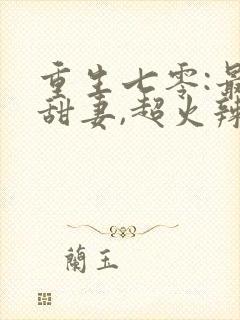 重生七零:最
甜妻,超火辣
蘭玉